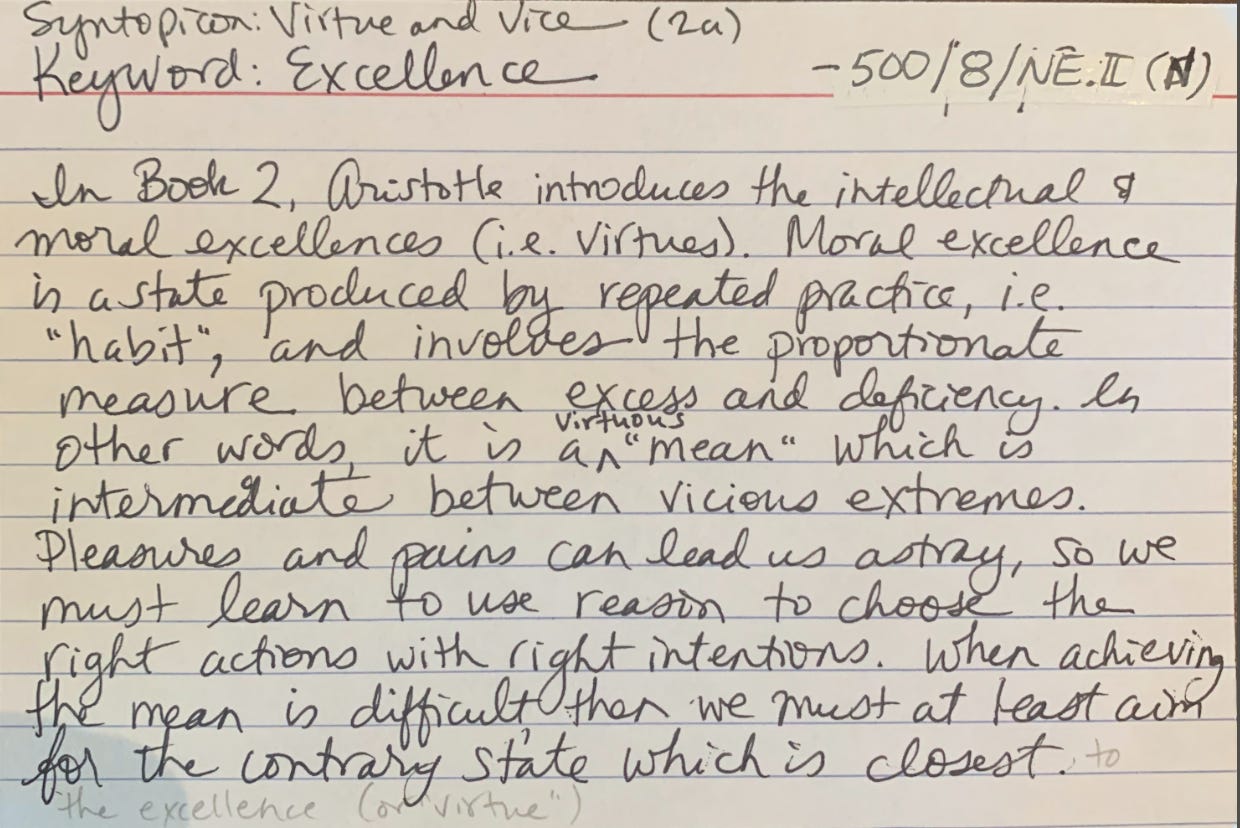 Syntopicon: Virtue and Vice (2a)
Keyword: Excellence
-500/8/NE.II (N)
In Book 2, Aristotle introduces the intellectual &
moral excellences (i.e. virtues). Moral excellence
is a state produced by repeated practice, i.e.
"habit", and involves the proportionate
measure between excess and deficiency. In
virtuous
other words, it is a ^ "mean" which is
intermediate between vicious extremes.
Pleasures and pains can lead us astray, so we
must learn to use reason to choose the
right actions with right intentions. When achieving
the mean is difficult, then we must at least aim
for the contrary state which is closest. to
the excellence (or "virtue")